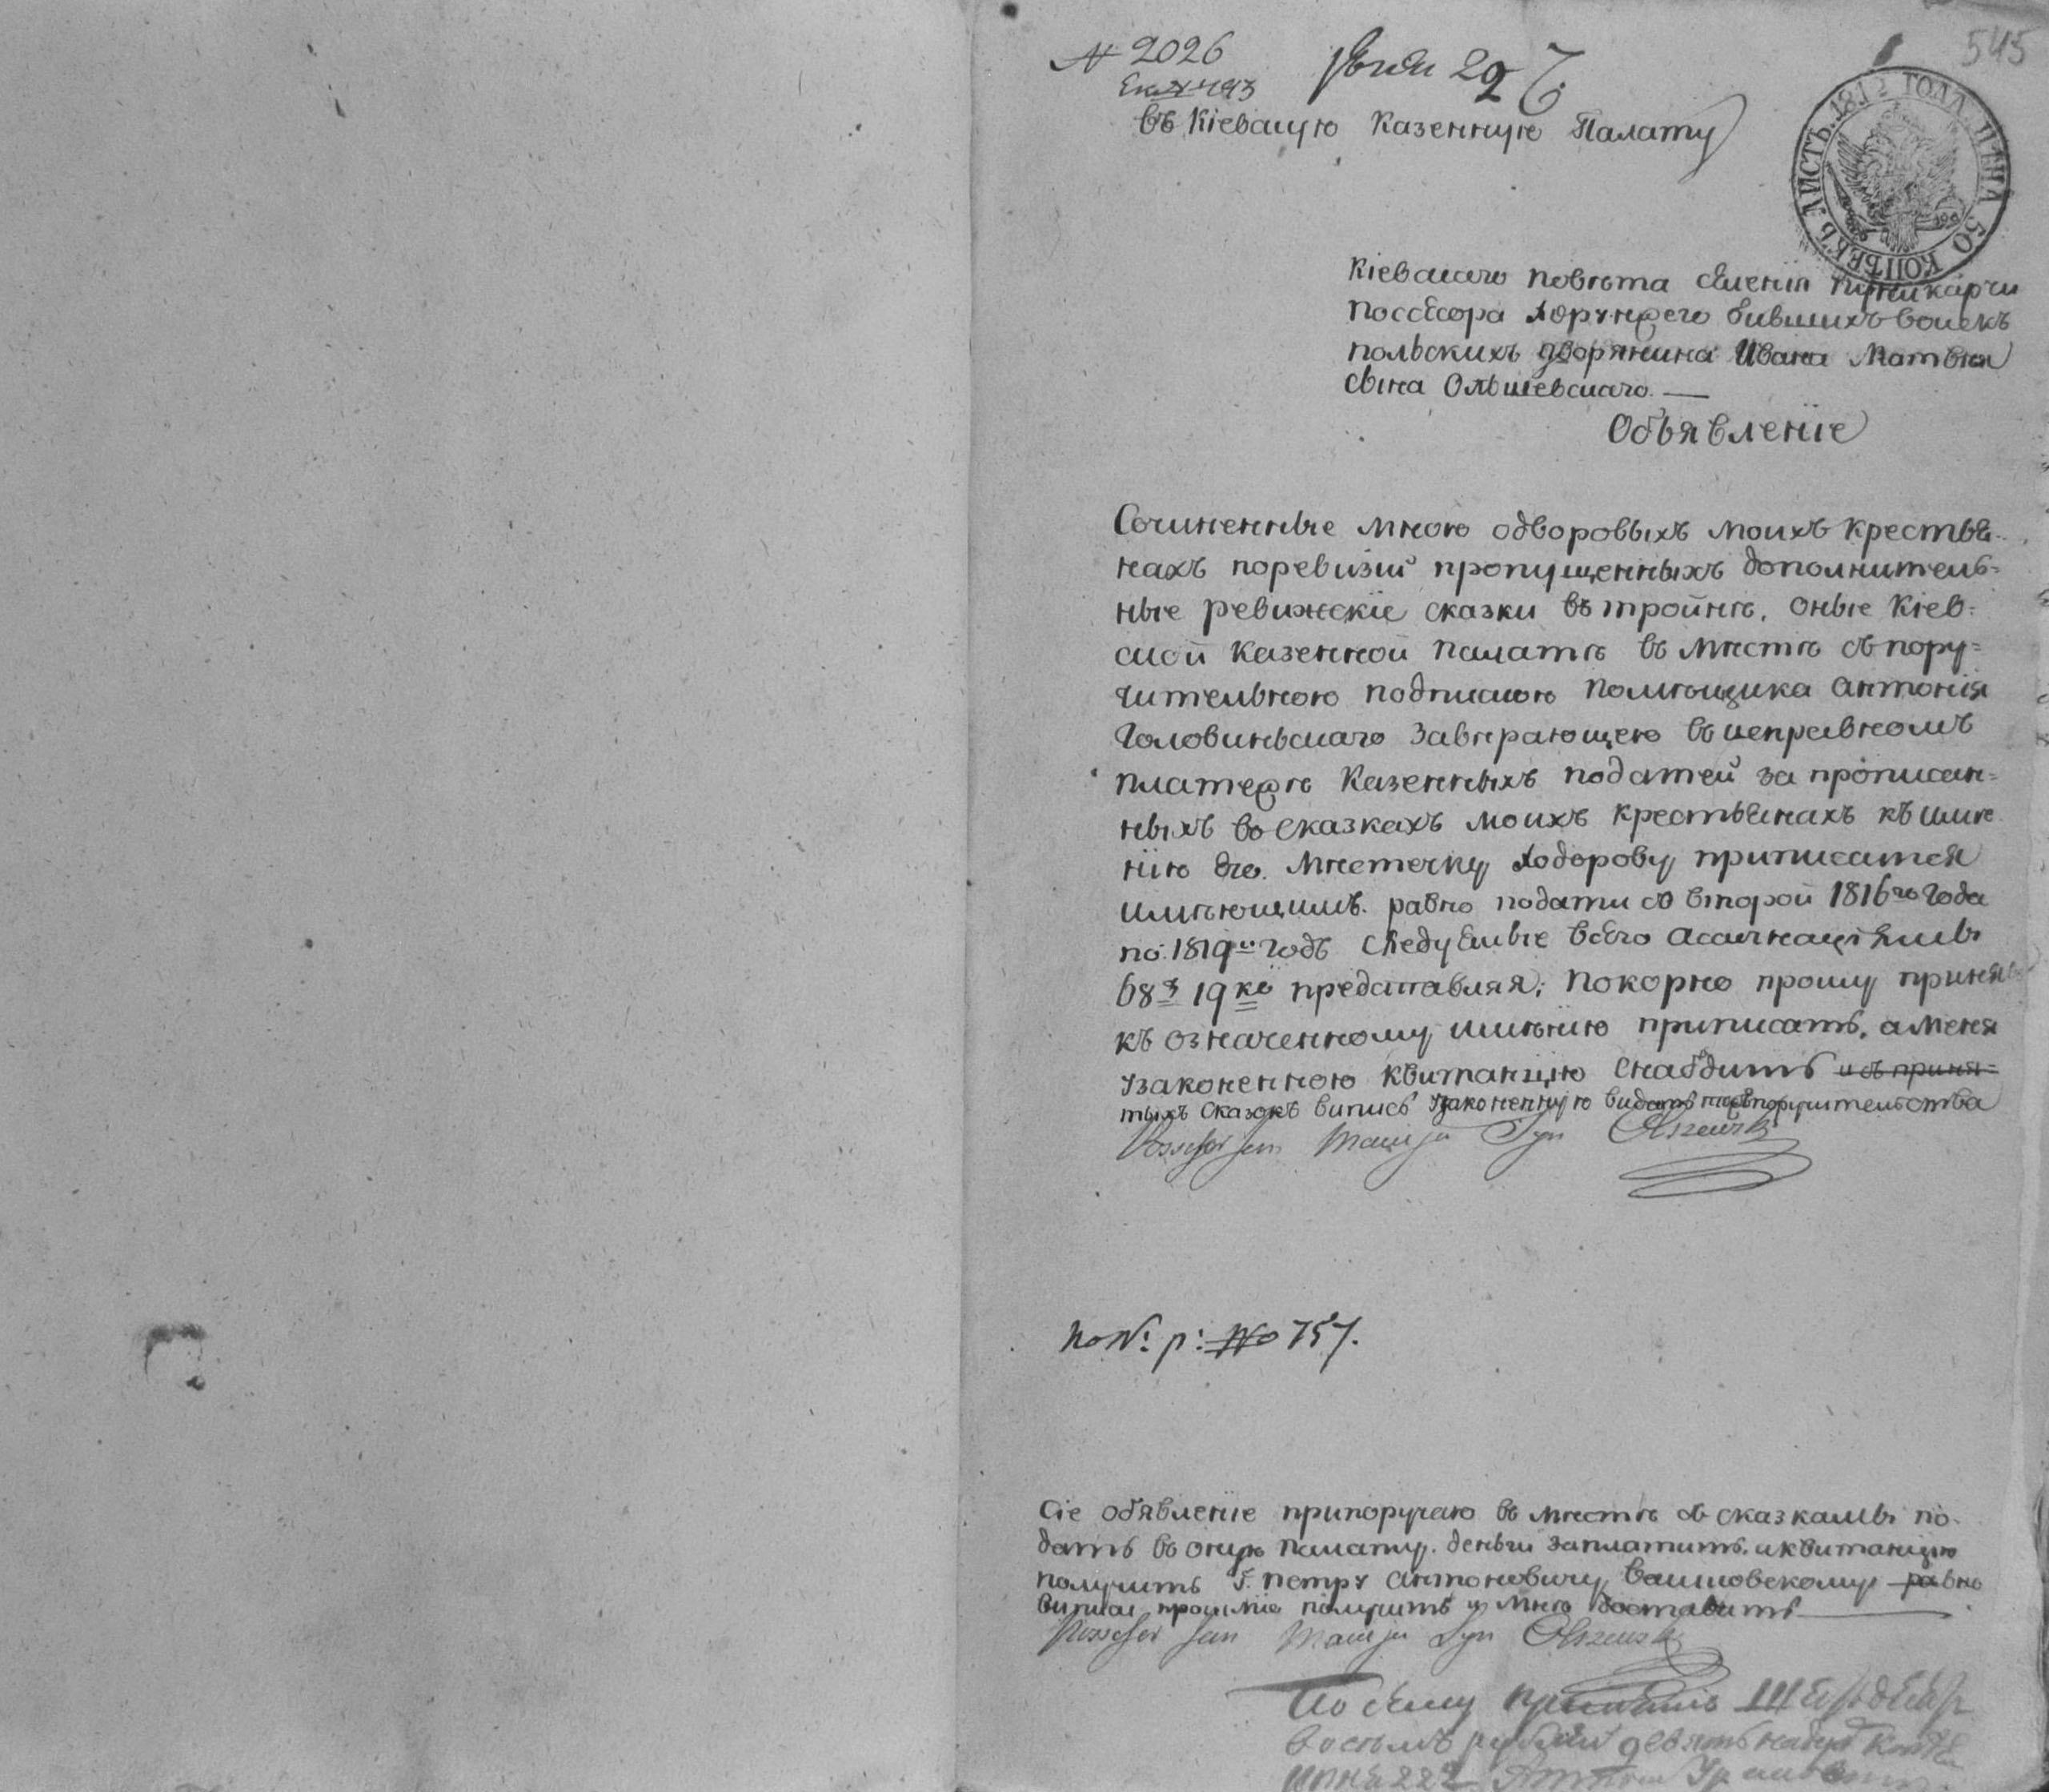 № 2026
545
22
въ Кіевскую Казенную Палату
ЛИСТЪ. 1812 ГОДА. ЦѢНА 50 КОПѢЕКЪ.
Кіевскаго повѣта
поссесора хорунжего бившихъ воискъ
польскихъ дворянина Ивана Матвѣя
сына Ольшевскаго. —
Объявленіе
Сочиненные мною одворовыхъ моихъ крестья-
нахъ поревизіи пропущенныхъ дополнитель=
ные ревижскіе сказки въ тройнѣ, оные Кіев=
ской Казенной палатѣ въ мѣстѣ съ пору=
чительною подпискою помѣщика Антонія
Головиньскаго завѣрающею въ исправномъ
платежѣ Казенныхъ податей за прописан=
ныхъ во сказкахъ моихъ крестьянахъ къ имѣ
нію его. мѣстечку Ходорову приписатся
имѣющимъ. равно подати со второй 1816го Года
по 1819й годъ следуемые всего асигнаціями
68 р 19 ко представляя; покорно прошу принять
къ означенному имѣнію приписать, а меня
узаконенною квитанцію снабдить и съ приня=
тыхъ сказокъ випись узаконенную видать поручительства
Possessor Jan Macieja Syn Olszewski
по №: р: № 757.
Сіе обявленіе припоручаю въ мѣстѣ съ сказками по-
дать въ оную палату. деньги заплатить. и квитанцію
получить Г. петру Антоновичу равно
получить и мнѣ доставить
Possessor Jan Macieja Syn Olszewski
По сему
восемь рублей девятнадцать